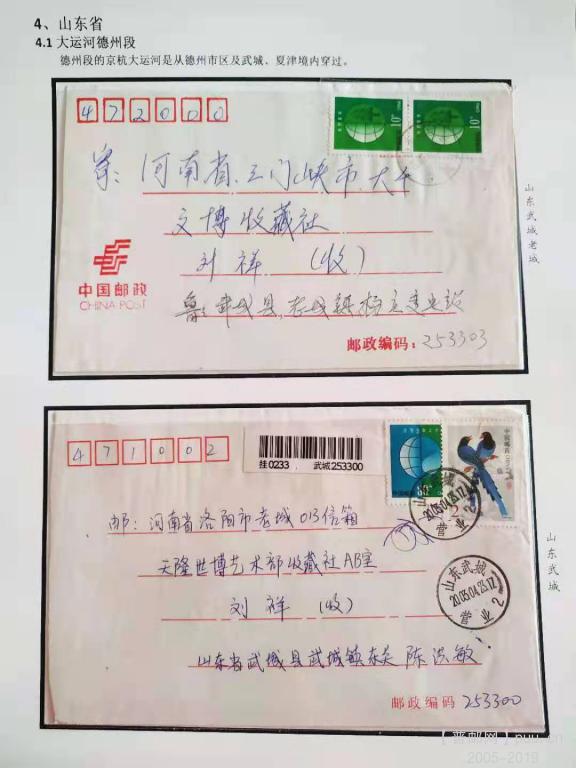 4、山东省
4.1 大运河德州段
德州段的京杭大运河是从德州市区及武城、夏津境内穿过。
472000
10分 10分
寄：河南省三门峡市大千
文博收藏社
刘祥（收）
中国邮政
CHINA POST
鲁 武城县
邮政编码：253303
山东武城老城
471002
挂0233 武城253300
80分
中国邮政
山东武城
2005.04.23.17
营业2
邮：河南省洛阳市老城013信箱
天隆世博艺术部收藏社AB室
刘祥（收）
山东武城
2005.04.23.17
营业2
山东省武城县武城镇东关 陈洪敏
邮政编码 253300
山东武城
2005-2019